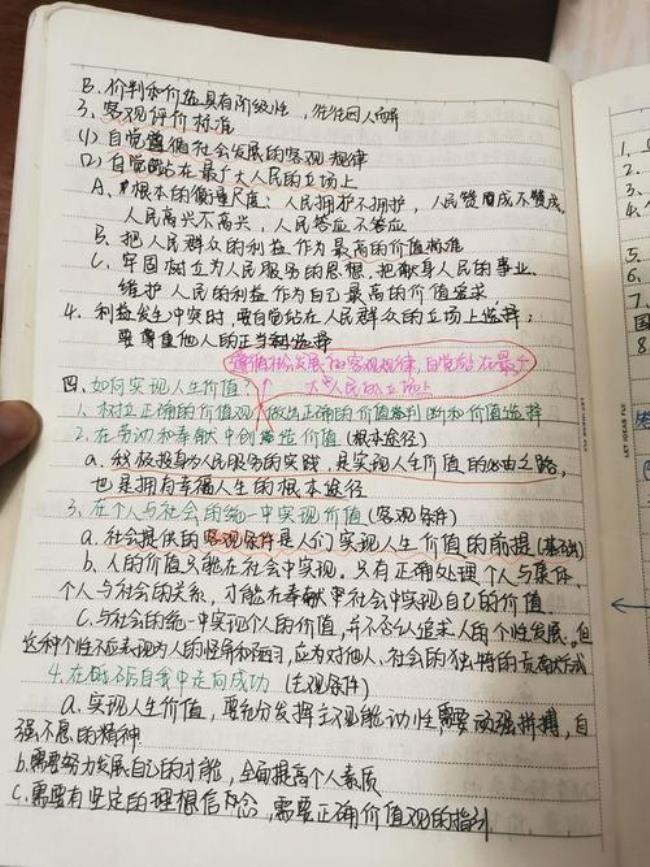 B. 价判和价值具有阶级性，往往因人而异
3、客观评价标准
(1) 自觉遵循社会发展的客观规律
(2) 自觉站在最广大人民的立场上
A、根本的衡量尺度：人民拥护不拥护，人民赞成不赞成、
人民高兴不高兴，人民答应不答应
B. 把人民群众的利益作为最高的价值标准
C. 牢固树立为人民服务的思想，把献身人民的事业、
维护人民的利益作为自己最高的价值追求
4. 利益发生冲突时，要自觉站在人民群众的立场上选择；
要尊重他人的正当利选择
遵循社会发展的客观规律，自觉站在最广
大人民的立场上
四、如何实现人生价值？
1. 树立正确的价值观，做出正确的价值判断和价值选择
2. 在劳动和奉献中创造价值(根本途径)
a. 积极投身为人民服务的实践，是实现人生价值的必由之路，
也是拥有幸福人生的根本途径
3、在个人与社会的统一中实现价值(客观条件)
a. 社会提供的客观条件是人们实现人生价值的前提(基础)
b. 人的价值只能在社会中实现。只有正确处理个人与集体、
个人与社会的关系，才能在奉献中社会中实现自己的价值.
C. 与社会的统一中实现个人的价值，并不否认追求人的个性发展。但
这种个性不应表现为人的怪异和陋习，应为对他人、社会的独特的贡献方式
4. 在砥砺自我中走向成功 (主观条件)
a. 实现人生价值，要充分发挥主观能动性，需要顽强拼搏，自
强不息的精神.
b. 需要努力发展自己的才能，全面提高个人素质
C. 需要有坚定的理想信念，需要正确价值观的指引
1.
2.
3、
4.
5.
6、
7、
国
8
LET IDEAS FLY